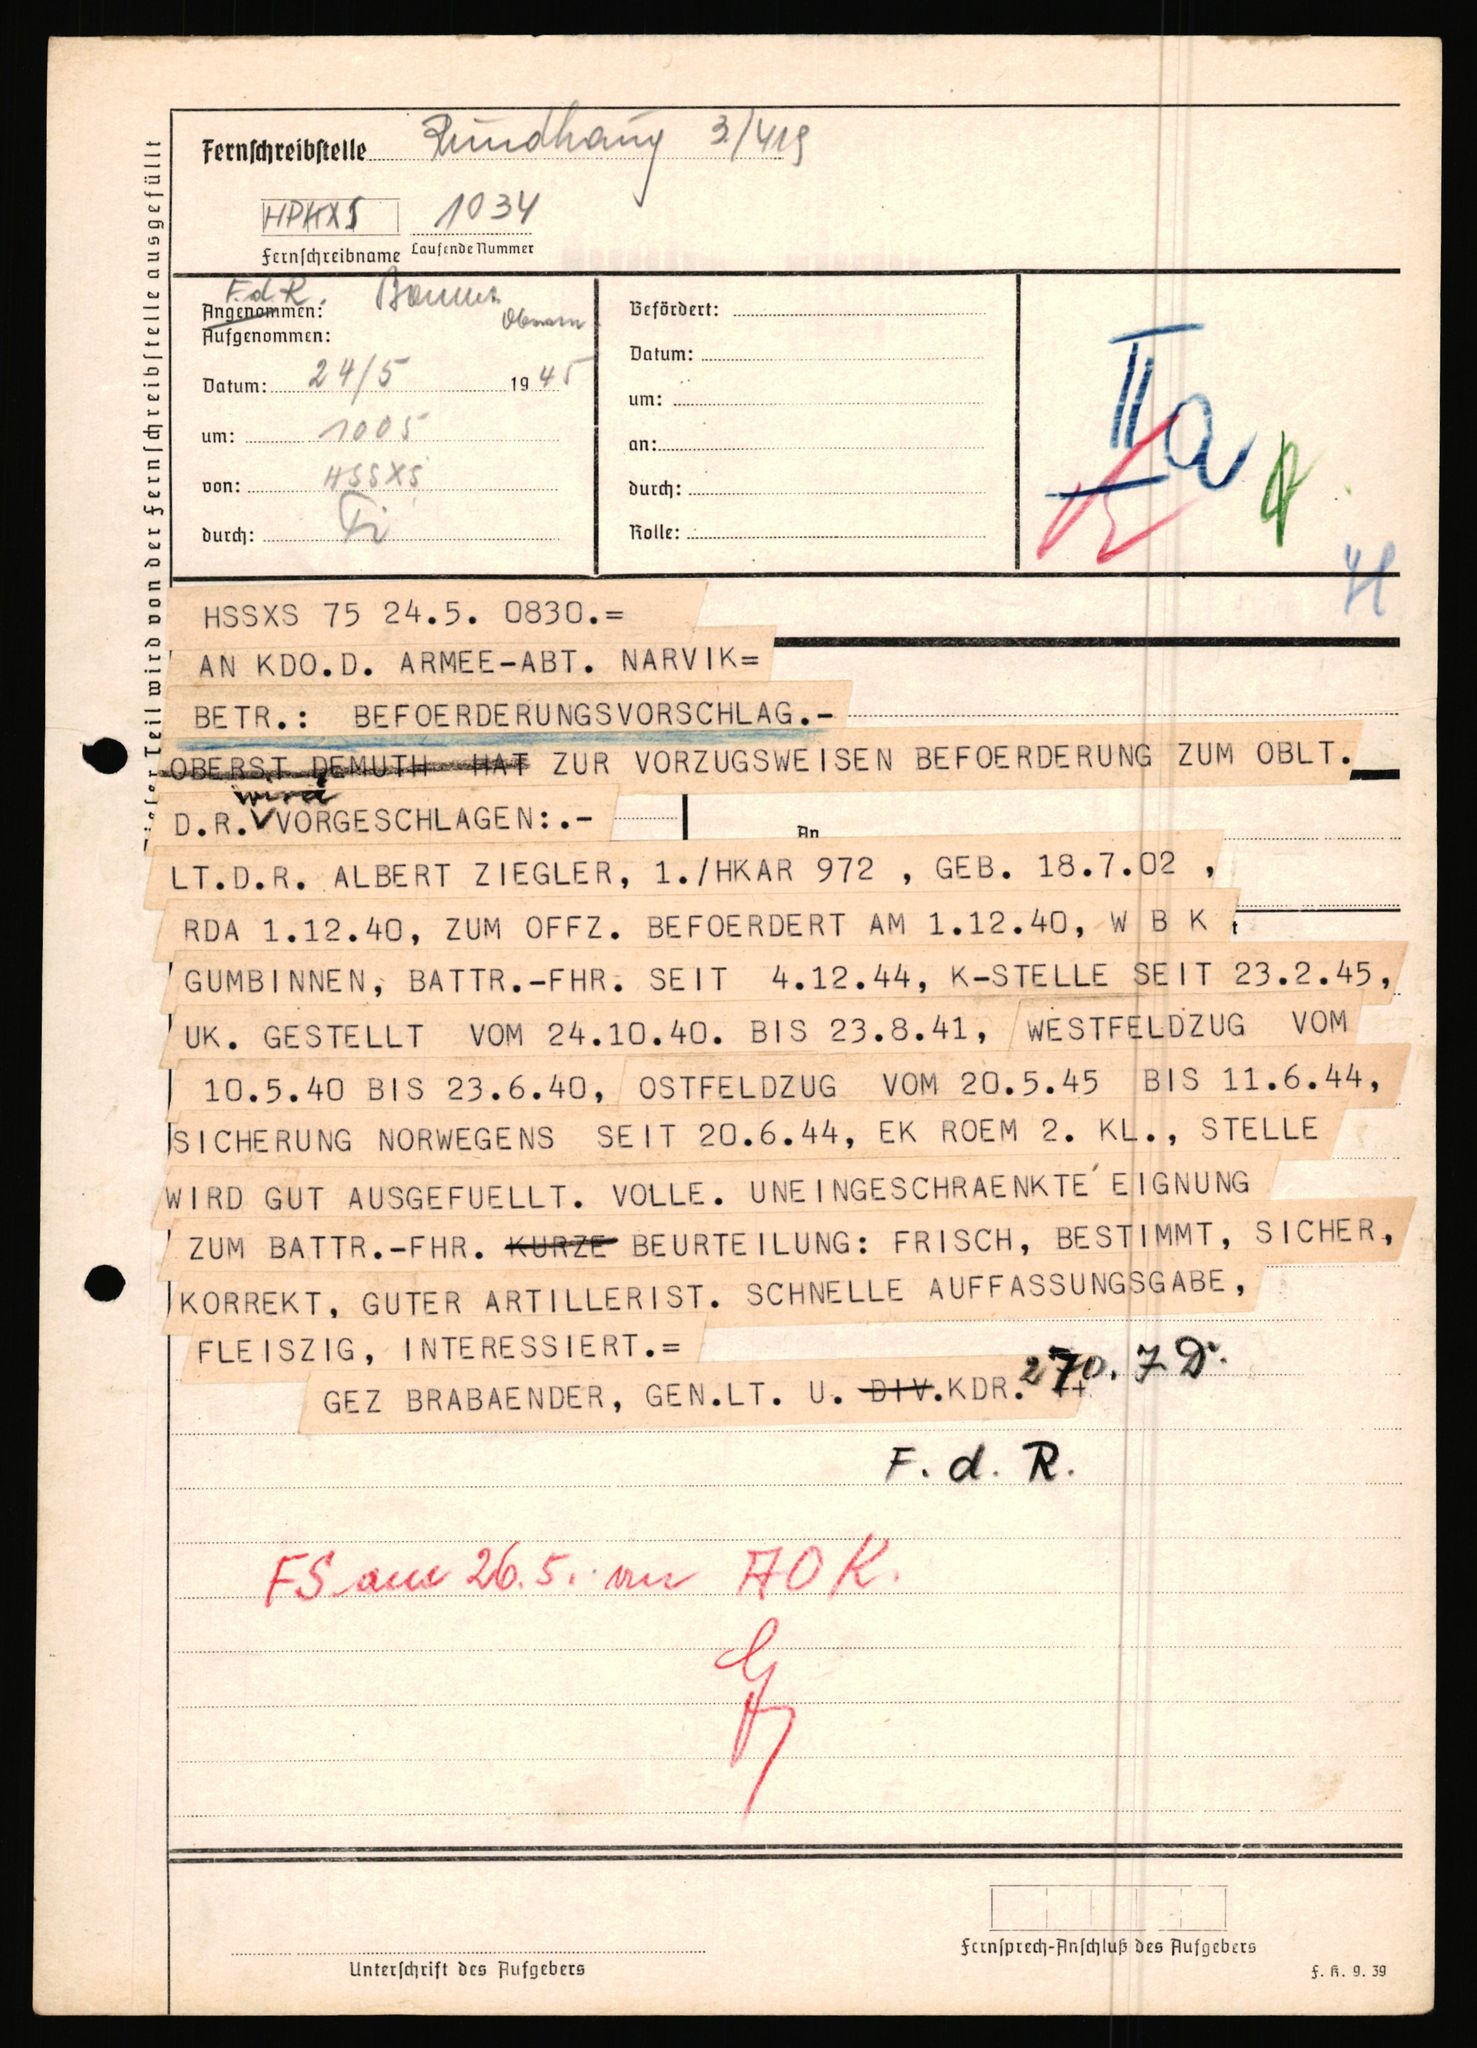 Fernschreibstelle Rundhaug 3/419
HPKXS 1034
Fernschreibname Laufende Nummer
F.d.R.
Angenommen:
Aufgenommen:
Datum: 24/5 1945
um: 1005
von: HSSXS
durch:
Befördert:
Datum:
um:
an:
durch:
Rolle:
IIa
HSSXS 75 24.5. 0830.=
AN KDO.D. ARMEE-ABT. NARVIK=
BETR.: BEFOERDERUNGSVORSCHLAG.-
OBERST DEMUTH HAT ZUR VORZUGSWEISEN BEFOERDERUNG ZUM OBLT.
wird
D.R. VORGESCHLAGEN:.-
An
LT.D.R. ALBERT ZIEGLER, 1./HKAR 972 , GEB. 18.7.02 ,
RDA 1.12.40, ZUM OFFZ. BEFOERDERT AM 1.12.40, W B K
GUMBINNEN, BATTR.-FHR. SEIT 4.12.44, K-STELLE SEIT 23.2.45,
UK. GESTELLT VOM 24.10.40. BIS 23.8.41, WESTFELDZUG VOM
10.5.40 BIS 23.6.40, OSTFELDZUG VOM 20.5.45 BIS 11.6.44,
SICHERUNG NORWEGENS SEIT 20.6.44, EK ROEM 2. KL., STELLE
WIRD GUT AUSGEFUELLT. VOLLE. UNEINGESCHRAENKTE EIGNUNG
ZUM BATTR.-FHR. KURZE BEURTEILUNG: FRISCH, BESTIMMT, SICHER,
KORREKT, GUTER ARTILLERIST. SCHNELLE AUFFASSUNGSGABE,
FLEISZIG, INTERESSIERT.=
GEZ BRABAENDER, GEN.LT. U. DIV.KDR. 270. J D.
F. d. R.
FS am 26.5. an AOK.
Unterschrift des Aufgebers
Fernsprech-Anschluß des Aufgebers
F. K. 9. 39